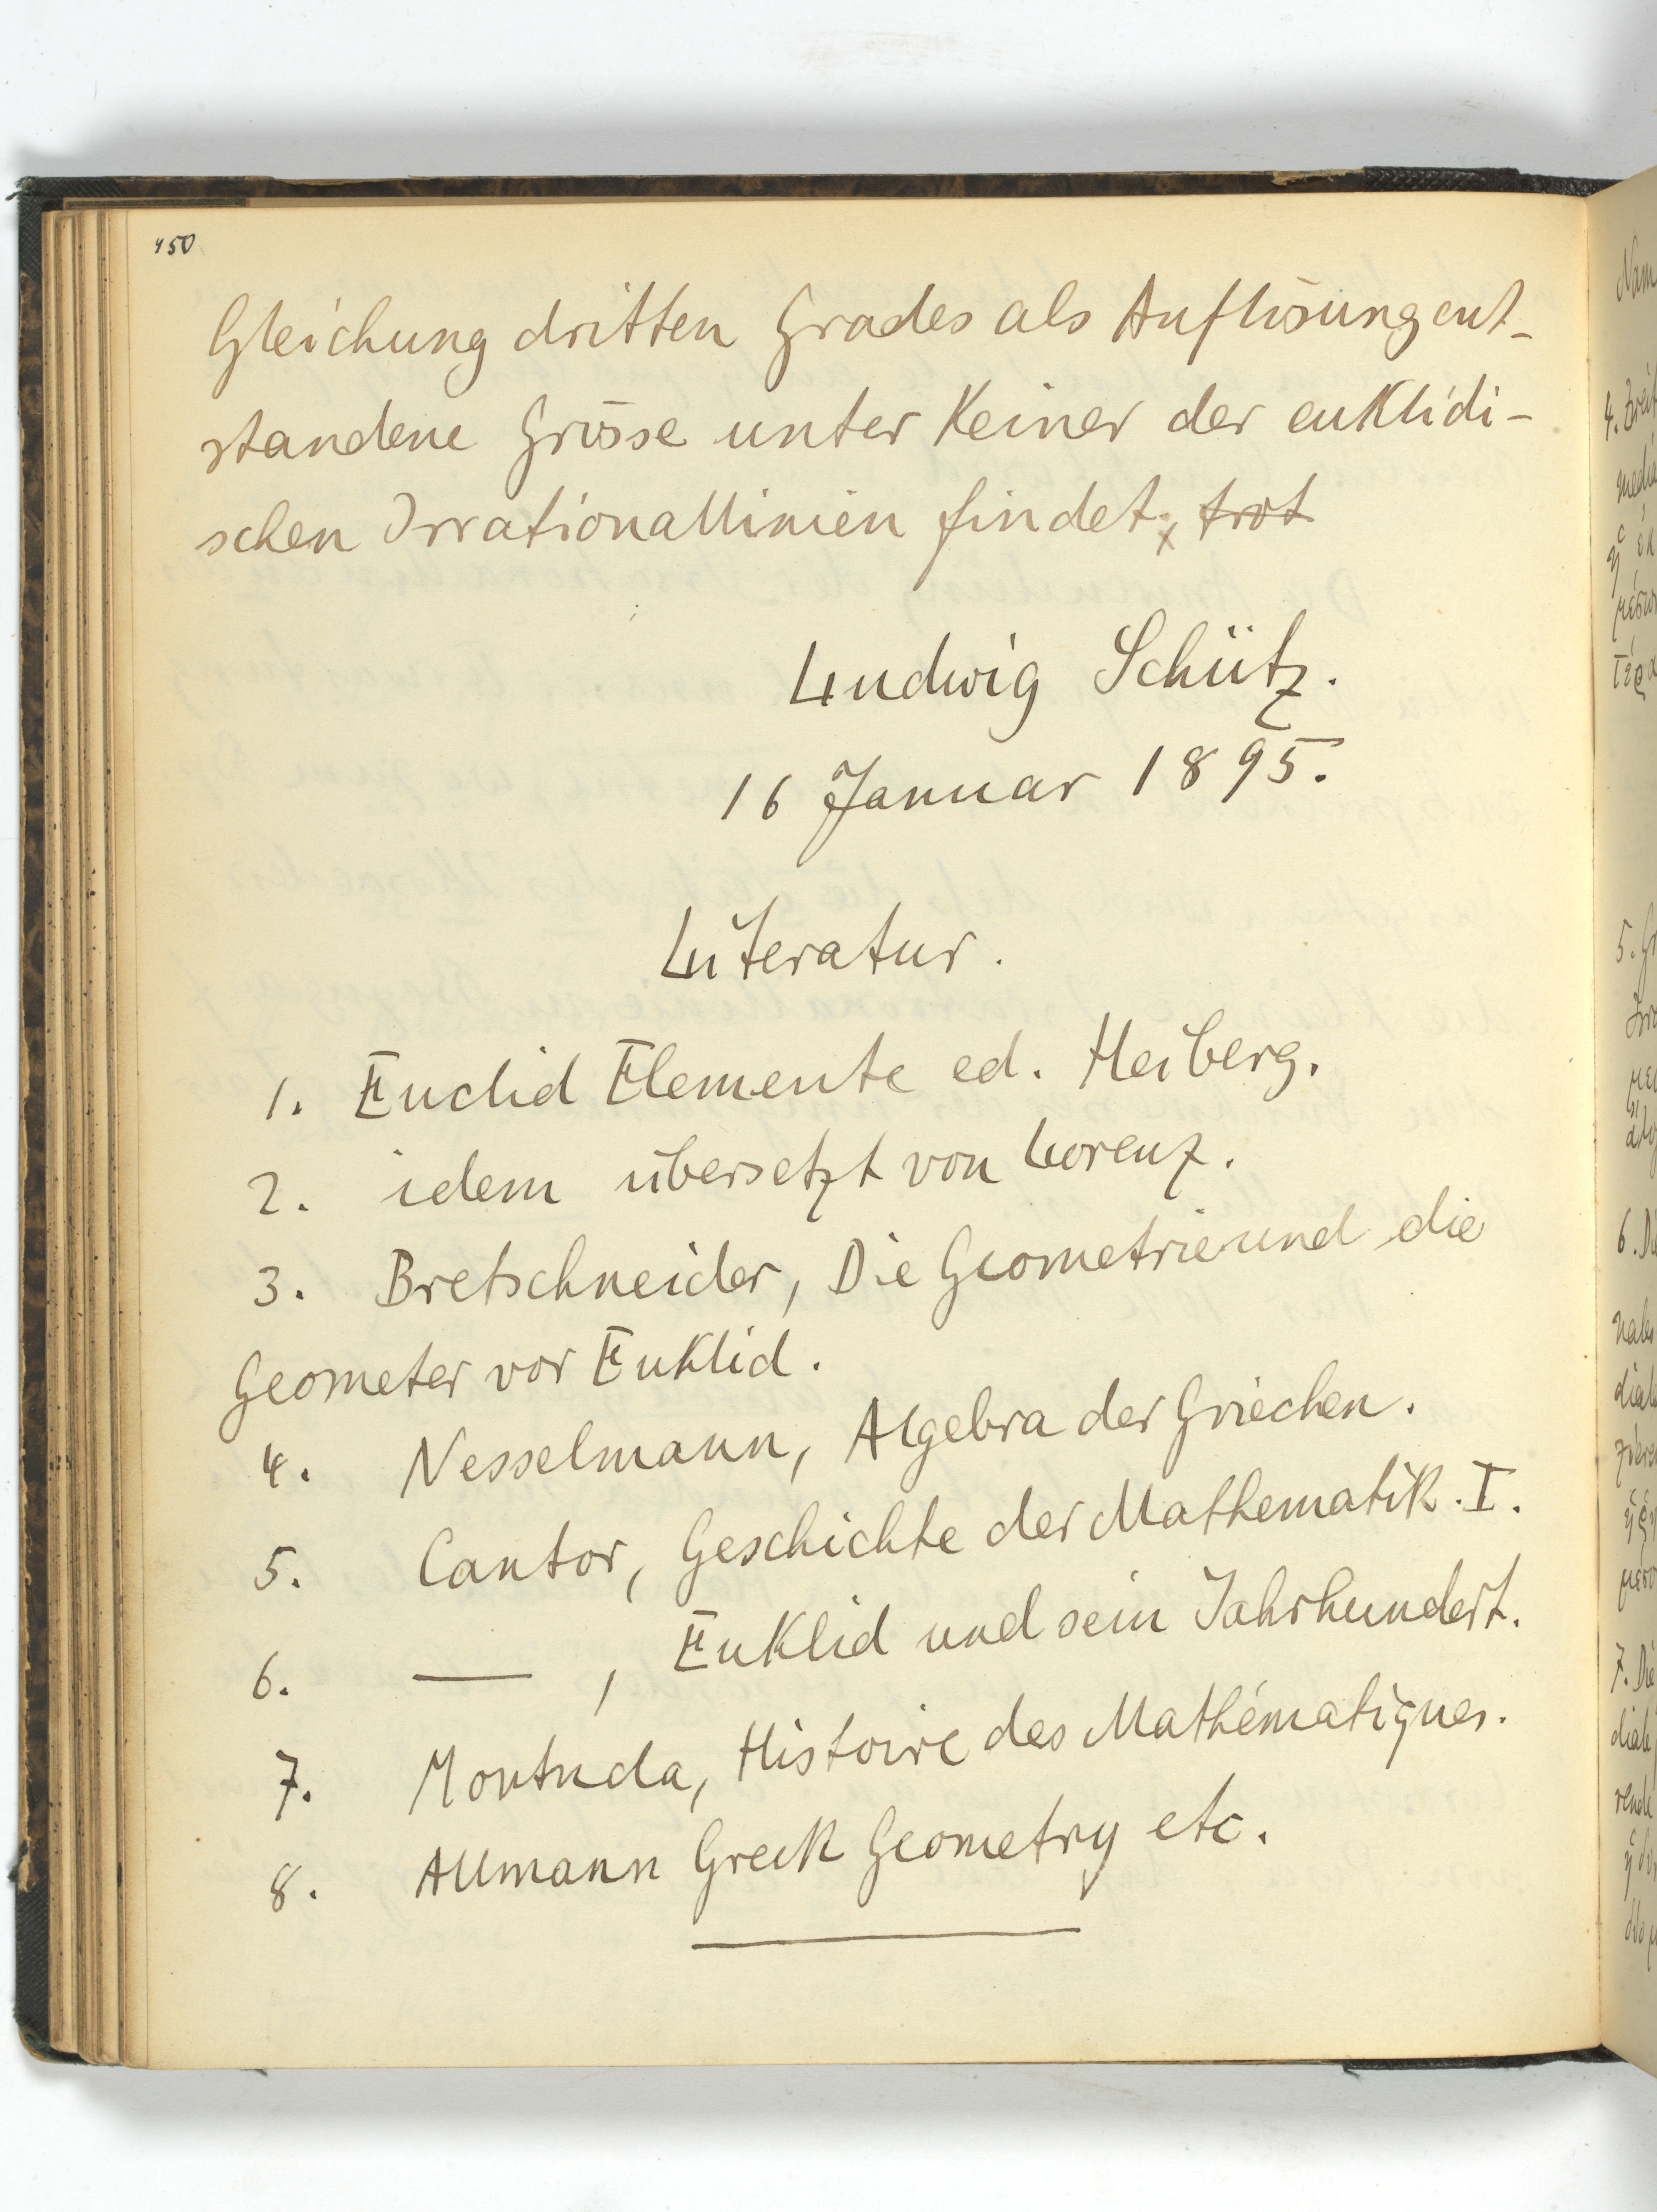 450
Gleichung dritten Grades als Auflösung ent-
standene Grösse unter keiner der euklidi-
schen Irrationallinien findet. trot
Ludwig Schütz.
16 Januar 1895.
Literatur.
1. Euclid Elemente ed. Heiberg.
2. idem übersetzt von Lorenz.
3. Bretschneider, Die Geometrie und die
Geometer vor Euklid.
4. Nesselmann, Algebra der Griechen.
5. Cantor, Geschichte der Mathematik. I.
6. — , Euklid und sein Jahrhundert.
7. Montucla, Histoire des Mathématiques.
8. Allmann Greek Geometry etc.